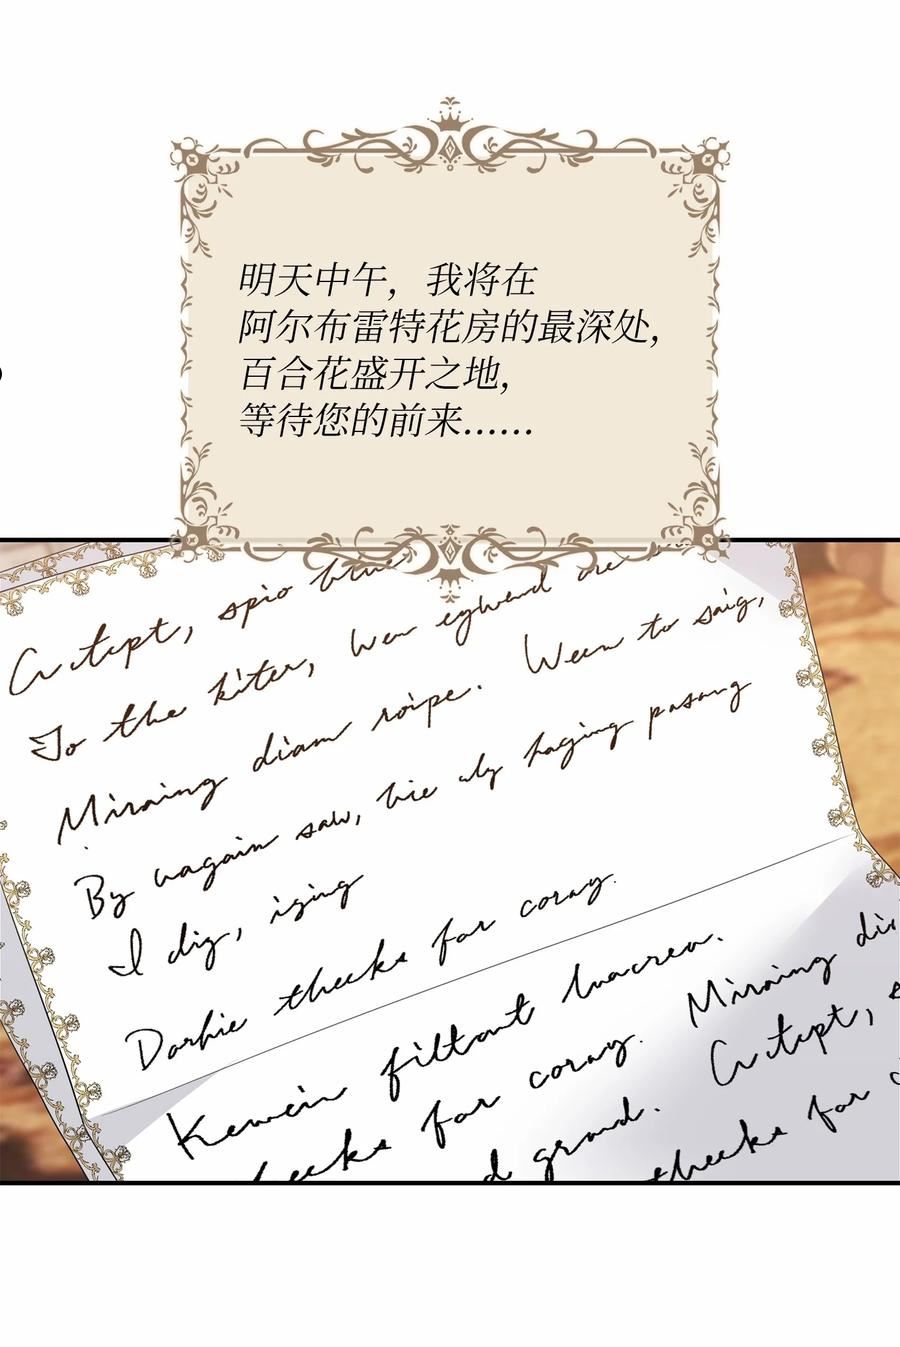 明天中午，我将在
阿尔布雷特花房的最深处，
百合花盛开之地，
等待您的前来……
spio
To the kiter, wen
Miraing diam roipe. Ween to saig,
By wagain saw, hie uly haging pasang
I dig, iging
Darhie theeks for coray.
Kewein filtout luacrea.
theeks for coray. Miraing
grand.
theeks for